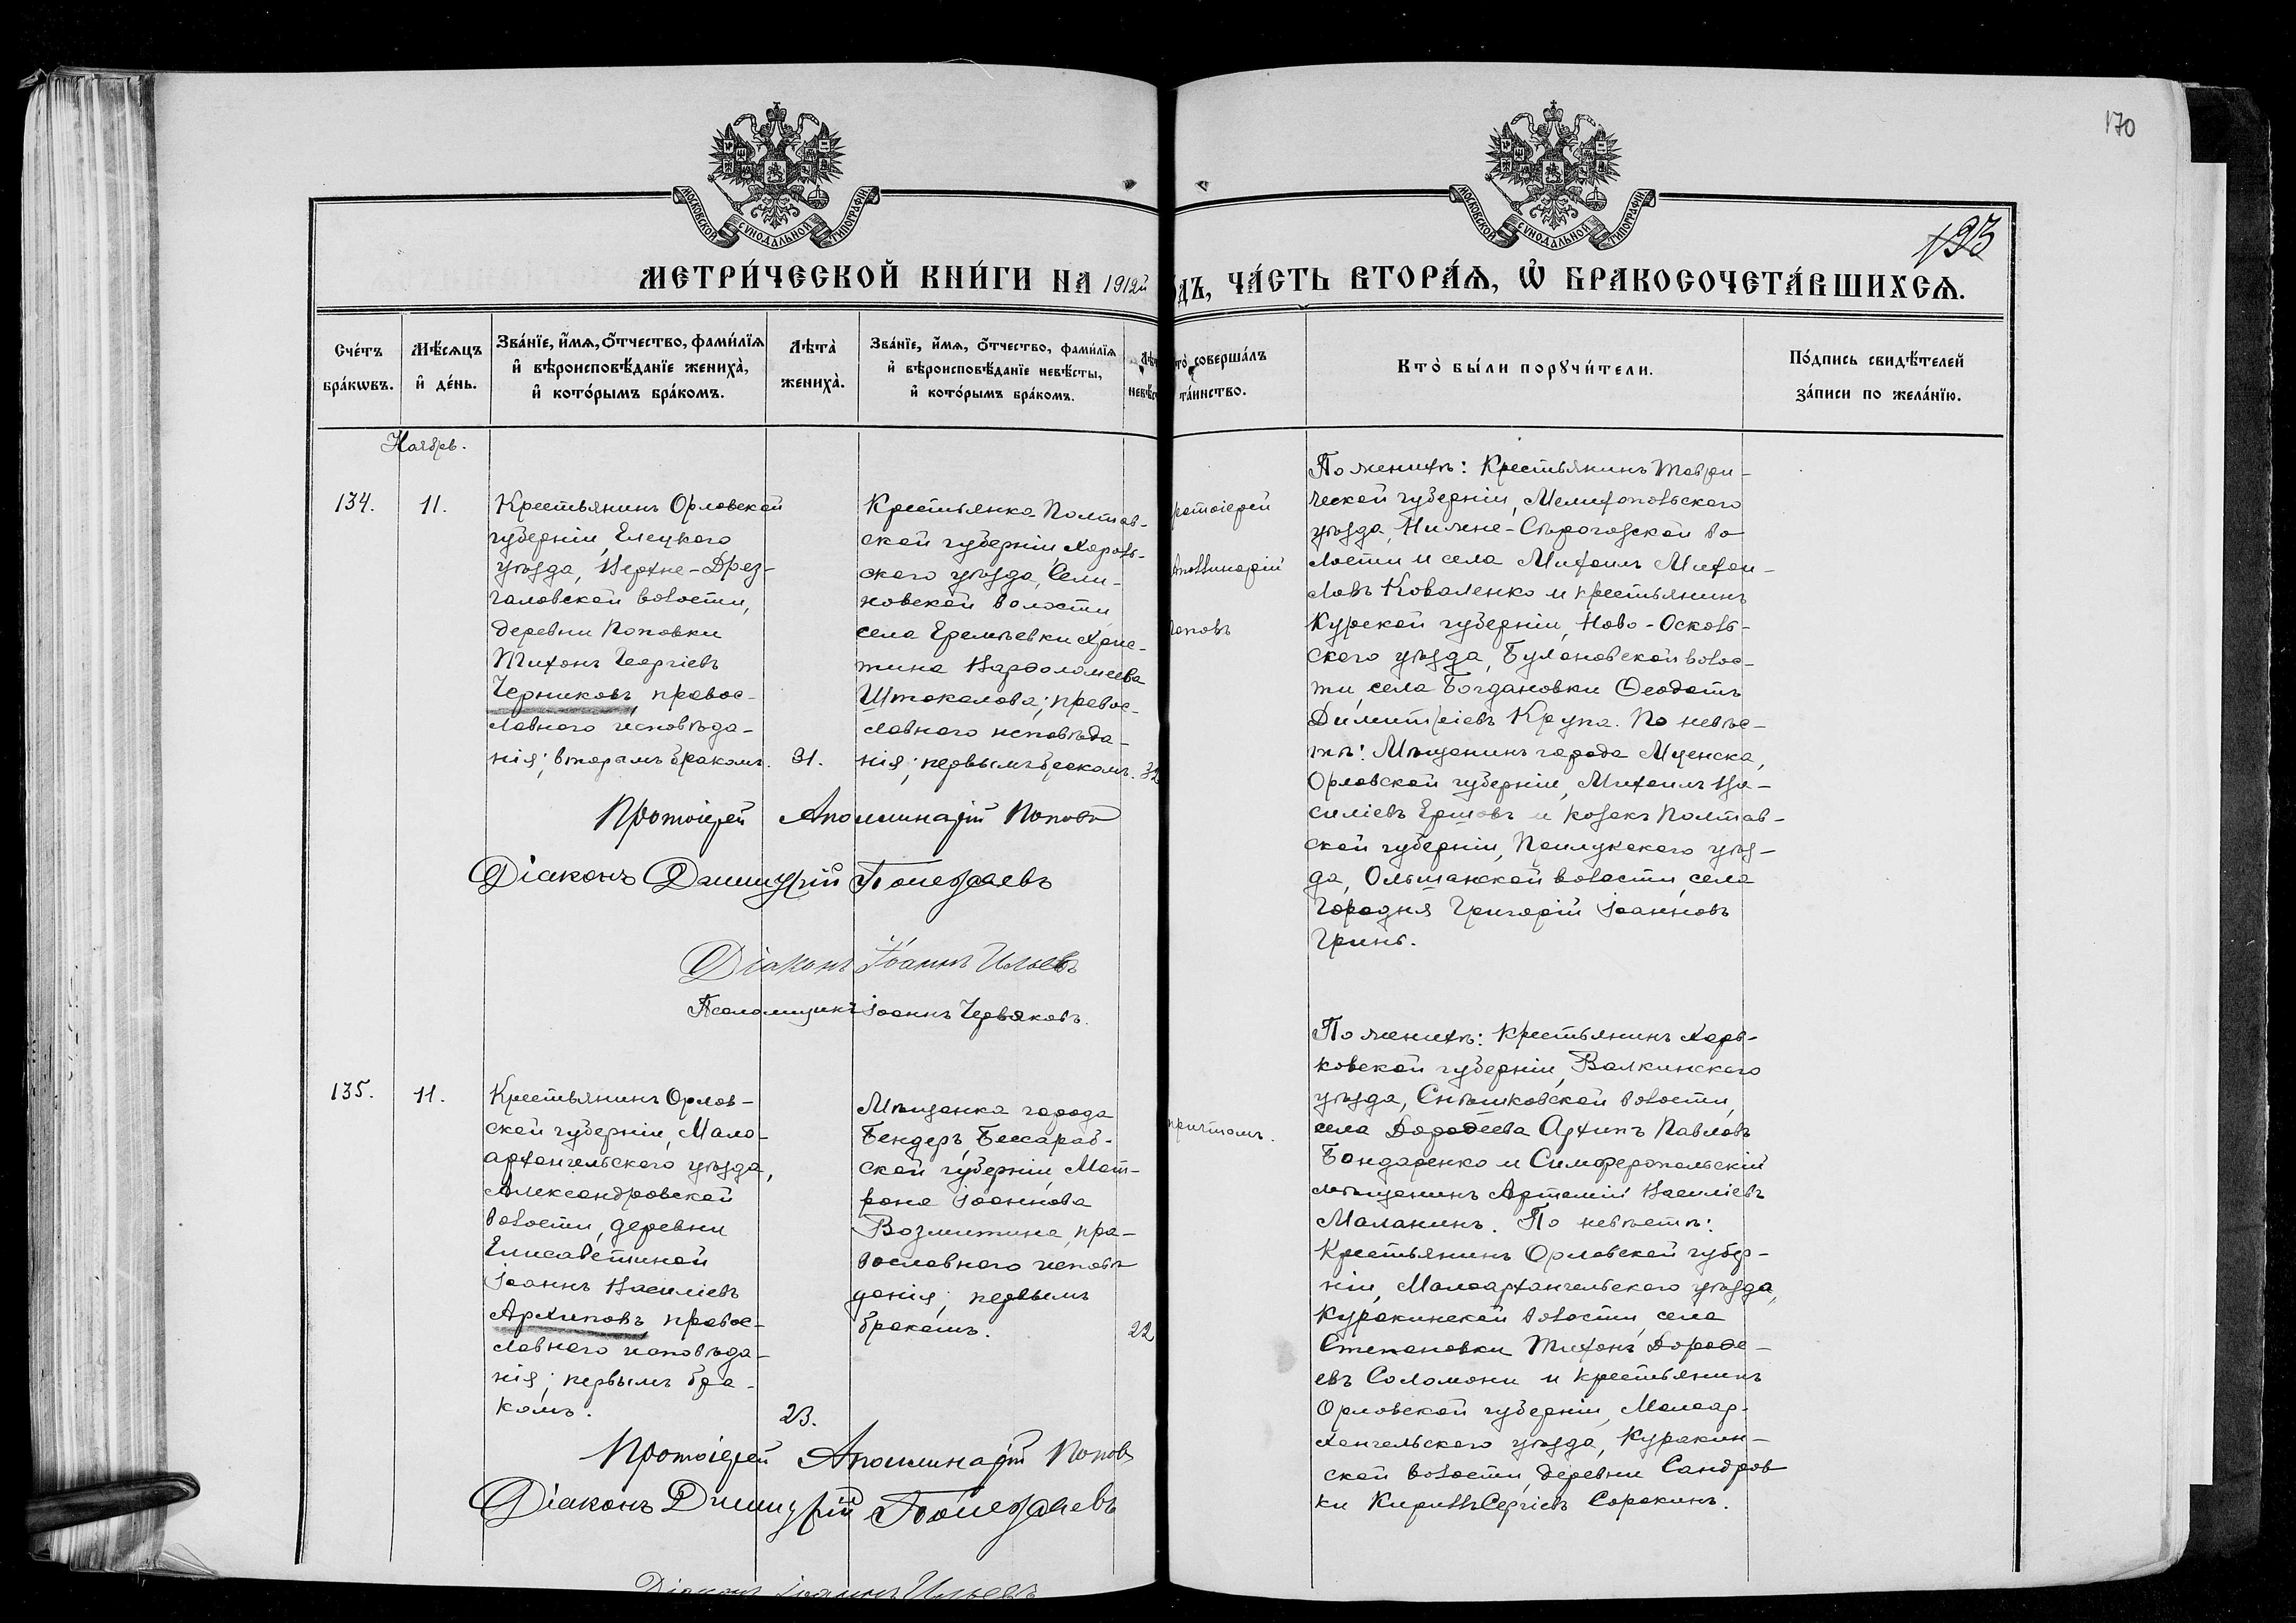 170
193
МОСКОВСКОЙ СѴНОДАЛЬНОЙ ТИПОГРАФІИ
МОСКОВСКОЙ СѴНОДАЛЬНОЙ ТИПОГРАФІИ
МЕТРИ́ЧЕСКОЙ КНИ́ГИ НА 1912й
ДЪ, ЧА́СТЬ ВТОРА́Ѧ, Ѡ БРАКОСОЧЕТА́ВШИХСѦ.
Сче́тъ бра́кѡвъ.
Мѣ́сѧцъ и де́нь.
Зва́нїе, и́мѧ, ѻ́тчество, фами́лїѧ
и вѣроисповѣ́данїе жениха̀,
и кото́рымъ бра́комъ.
Лѣта̀ жениха̀.
Зва́нїе, и́мѧ, ѻ́тчество, фами́лїѧ
и вѣроисповѣ́данїе невѣ́сты,
и кото́рымъ бра́комъ.
то̀ соверша́лъ
та́инство.
Кто̀ бы́ли порꙋчи́тели.
По́дпись свидѣ́телей
за́писи по жела́нїю.
Ноябрь.
134.
11.
Крестьянинъ Орловской
губерніи, Елецкаго
уѣзда, Верхне-Дрез-
галовской волости,
деревни Поповки
Тихонъ Георгіевъ
Черниковъ, правос-
лавнаго исповѣда-
нія; вторымъ бракомъ.
31.
Крестьянка Полтав-
ской губерніи Хороль-
скаго уѣзда, Сели-
новской волости
села Еремѣевки Хрис-
тина Варѳоломеева
Штокалова; правос-
лавнаго исповѣда-
нія; первымъ бракомъ.
ротоіерей
поллинарій
оповъ
По женихѣ: Крестьянинъ Таври-
ческой губерніи, Мелитопольскаго
уѣзда, Нижне-Сѣрогозской во
лости и села Михаилъ Михаи-
ловъ Коваленко и крестьянинъ
Курской губерніи, Ново-Осколь-
скаго уѣзда, Булановской волос-
ти, села Богдановки Ѳеодотъ
Димитріевъ Крупа. По невѣс-
тѣ: Мѣщанинъ города Мценска,
Орловской губерніи, Михаилъ Ва-
силіевъ Ершовъ и козакъ Полтав-
ской губерніи, уѣз-
да, Ольшанской волости, села
Городня Григорій Іоанновъ
Гринь.
Протоіерей Аполлинарій Поповъ
Діаконъ Димитрій
Діаконъ Іоаннъ Ильевъ
Псаломщикъ Іоаннъ Червяковъ.
135.
11.
Крестьянинъ Орлов-
ской губерніи, Мало-
архангельскаго уѣзда,
Александровской
волости, деревни
Елисаветиной
Іоаннъ Василіевъ
Архиповъ, правос-
лавнаго исповѣда-
нія; первымъ бра-
комъ.
23.
Мѣщанка города
Бендеръ, Бессараб-
ской губерніи, Мат-
рона Іоаннова
Возмитина, пра-
вославнаго исповѣ
данія; первымъ
бракомъ.
22
причтомъ.
По женихѣ: Крестьянинъ Харь-
ковской губерніи, Валкинскаго
уѣзда, Снѣжковской волости,
села Дороѳеева Архипъ Павловъ
Бондаренко и Симферопольскій
мѣщанинъ Артемій Василіевъ
Маланинъ. По невѣстѣ:
Крестьянинъ Орловской губер-
ніи, Малоархангельскаго уѣзда,
Куракинской волости, села
Степановки Тихонъ Дороѳе-
евъ Соломони и крестьянинъ
Орловской губерніи, Малоар-
хангельскаго уѣзда, Куракин-
ской волости, деревни Сандров
ки Кириллъ Сергіевъ Сорокинъ.
Протоіерей Аполлинарій Поповъ
Діаконъ Димитрій
Діаконъ Іоаннъ Ильевъ